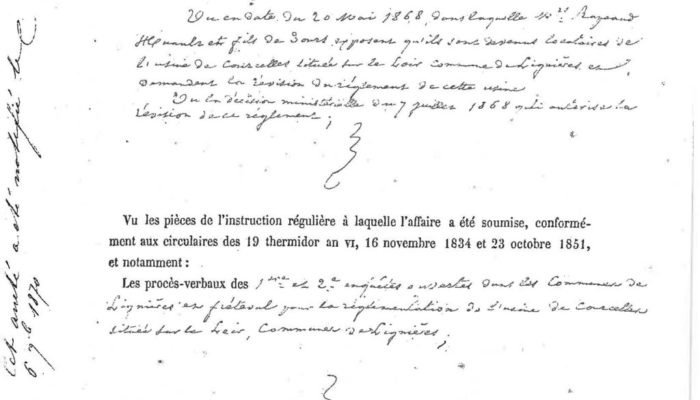 Vu en date du 20 Mai 1868, dans laquelle Mrs
et fils de exposent qu'ils sont devenus locataires de
l'usine de Courcelles située sur le Loir commune de Lignières, et
demandent la révision du règlement de cette usine
Vu la décision ministérielle du 7 juillet 1868 qui autorise la
révision de ce règlement;
Vu les pièces de l'instruction régulière à laquelle l'affaire a été soumise, conformé-
ment aux circulaires des 19 thermidor an VI, 16 novembre 1834 et 23 octobre 1851,
et notamment :
Les procès-verbaux des 1ère et 2e enquêtes ouvertes dans les Communes de
Lignières et fréteval pour la règlementation de l'usine de Courcelles
située sur le Loir, Commune de Lignières;
Cet arrêté a été notifié le
6 9bre 1870